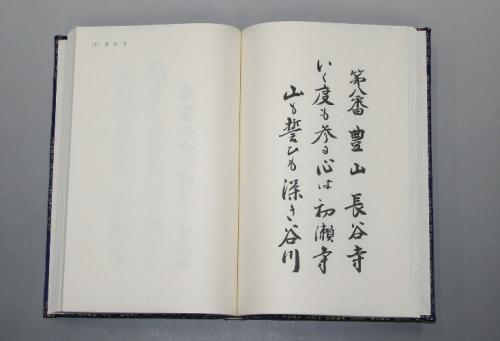 第八番 豊山 長谷寺
いく度も参る心は初瀬寺
山も誓ひも深き谷川